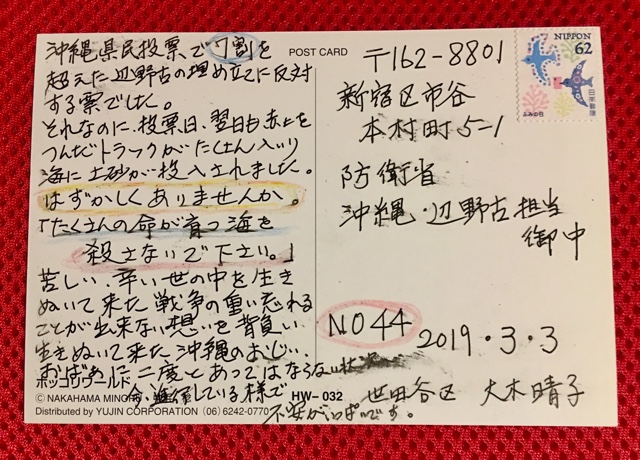 沖縄県民投票で7割を
超えた辺野古の埋め立てに反対
する票でした。
それなのに、投票日、翌日も赤土を
つんだトラックがたくさん入り
海に土砂が投入されました。
はずかしくありませんか。
「たくさんの命が育つ海を
殺さないで下さい。」
苦しい、辛い世の中を生き
ぬいて来た戦争の重い忘れる
ことが出来ない想いを背負い
生きぬいて来た沖縄のおじい、
おばあに二度とあってはならない状況
今、進行している様で
不安がいっぱいです。
ポッコリワールド
© NAKAHAMA MINORU
Distributed by YUJIN CORPORATION (06) 6242-0770
HW- 032
POST CARD
NIPPON
62
日本郵便
ふみの日
〒162-8801
新宿区市谷
本村町5-1
防衛省
沖縄・辺野古担当
御中
NO44
2019・3・3
世田谷区 大木晴子